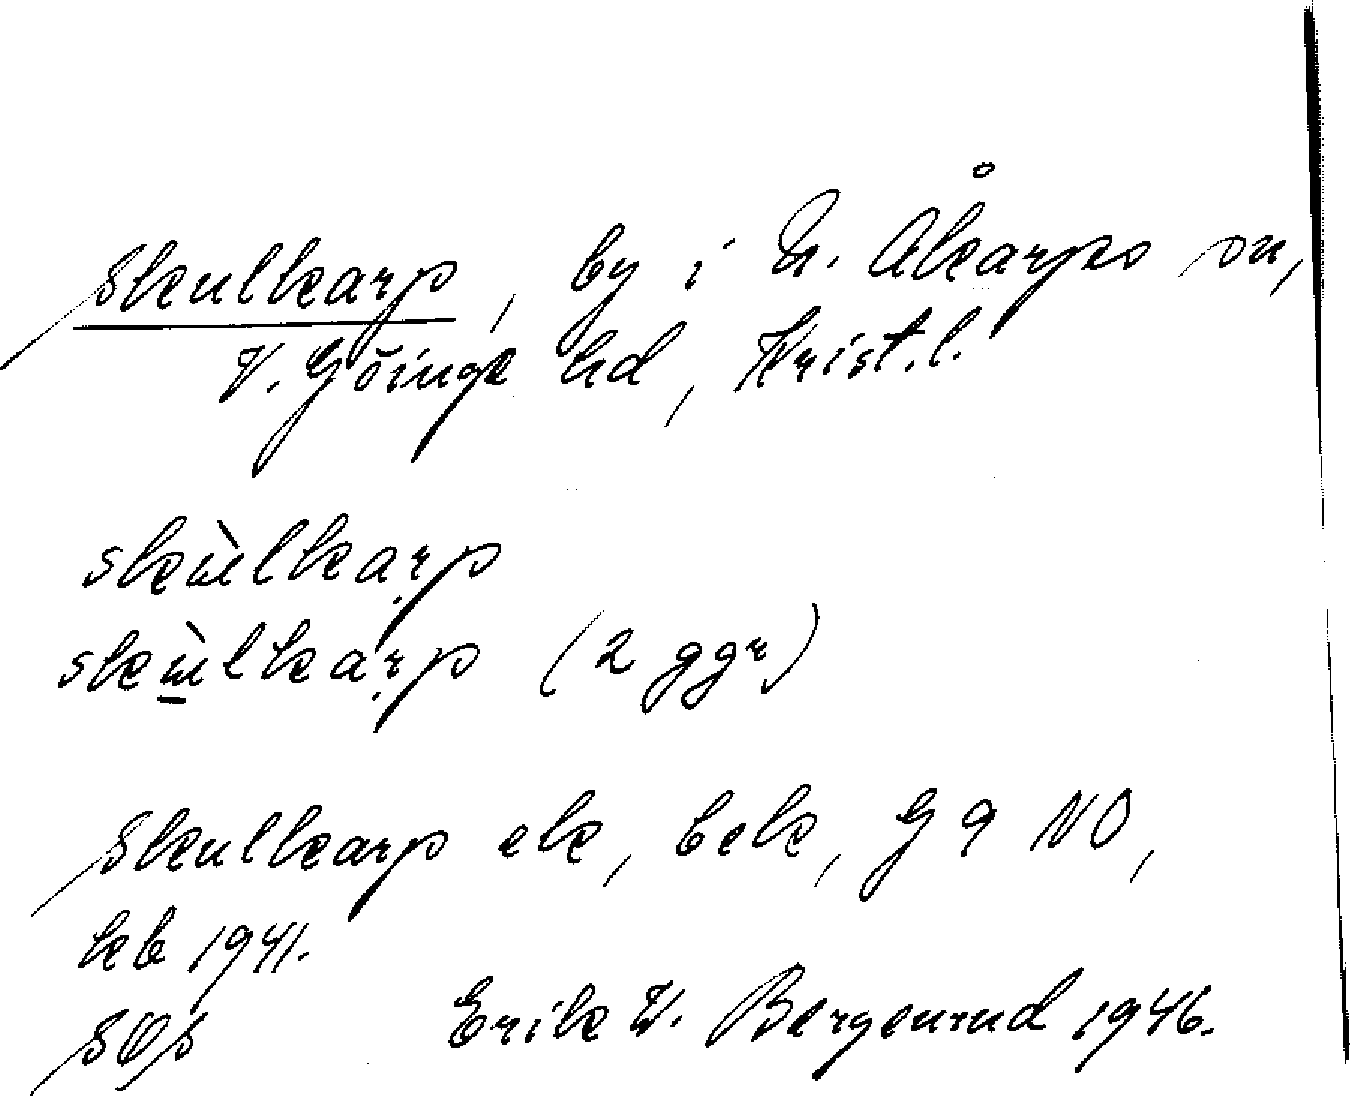 Skulkarp, by i N. Åkarps sn,
V. Göinge hd, Krist.l.
skɯ̀lkarp̣
skɯ̲̀lkarp̣ (2 ggr)
Skulkarp ek, bek, G 9 NO,
kb 1941.
SOS Erik W. Bergenrud 1946.